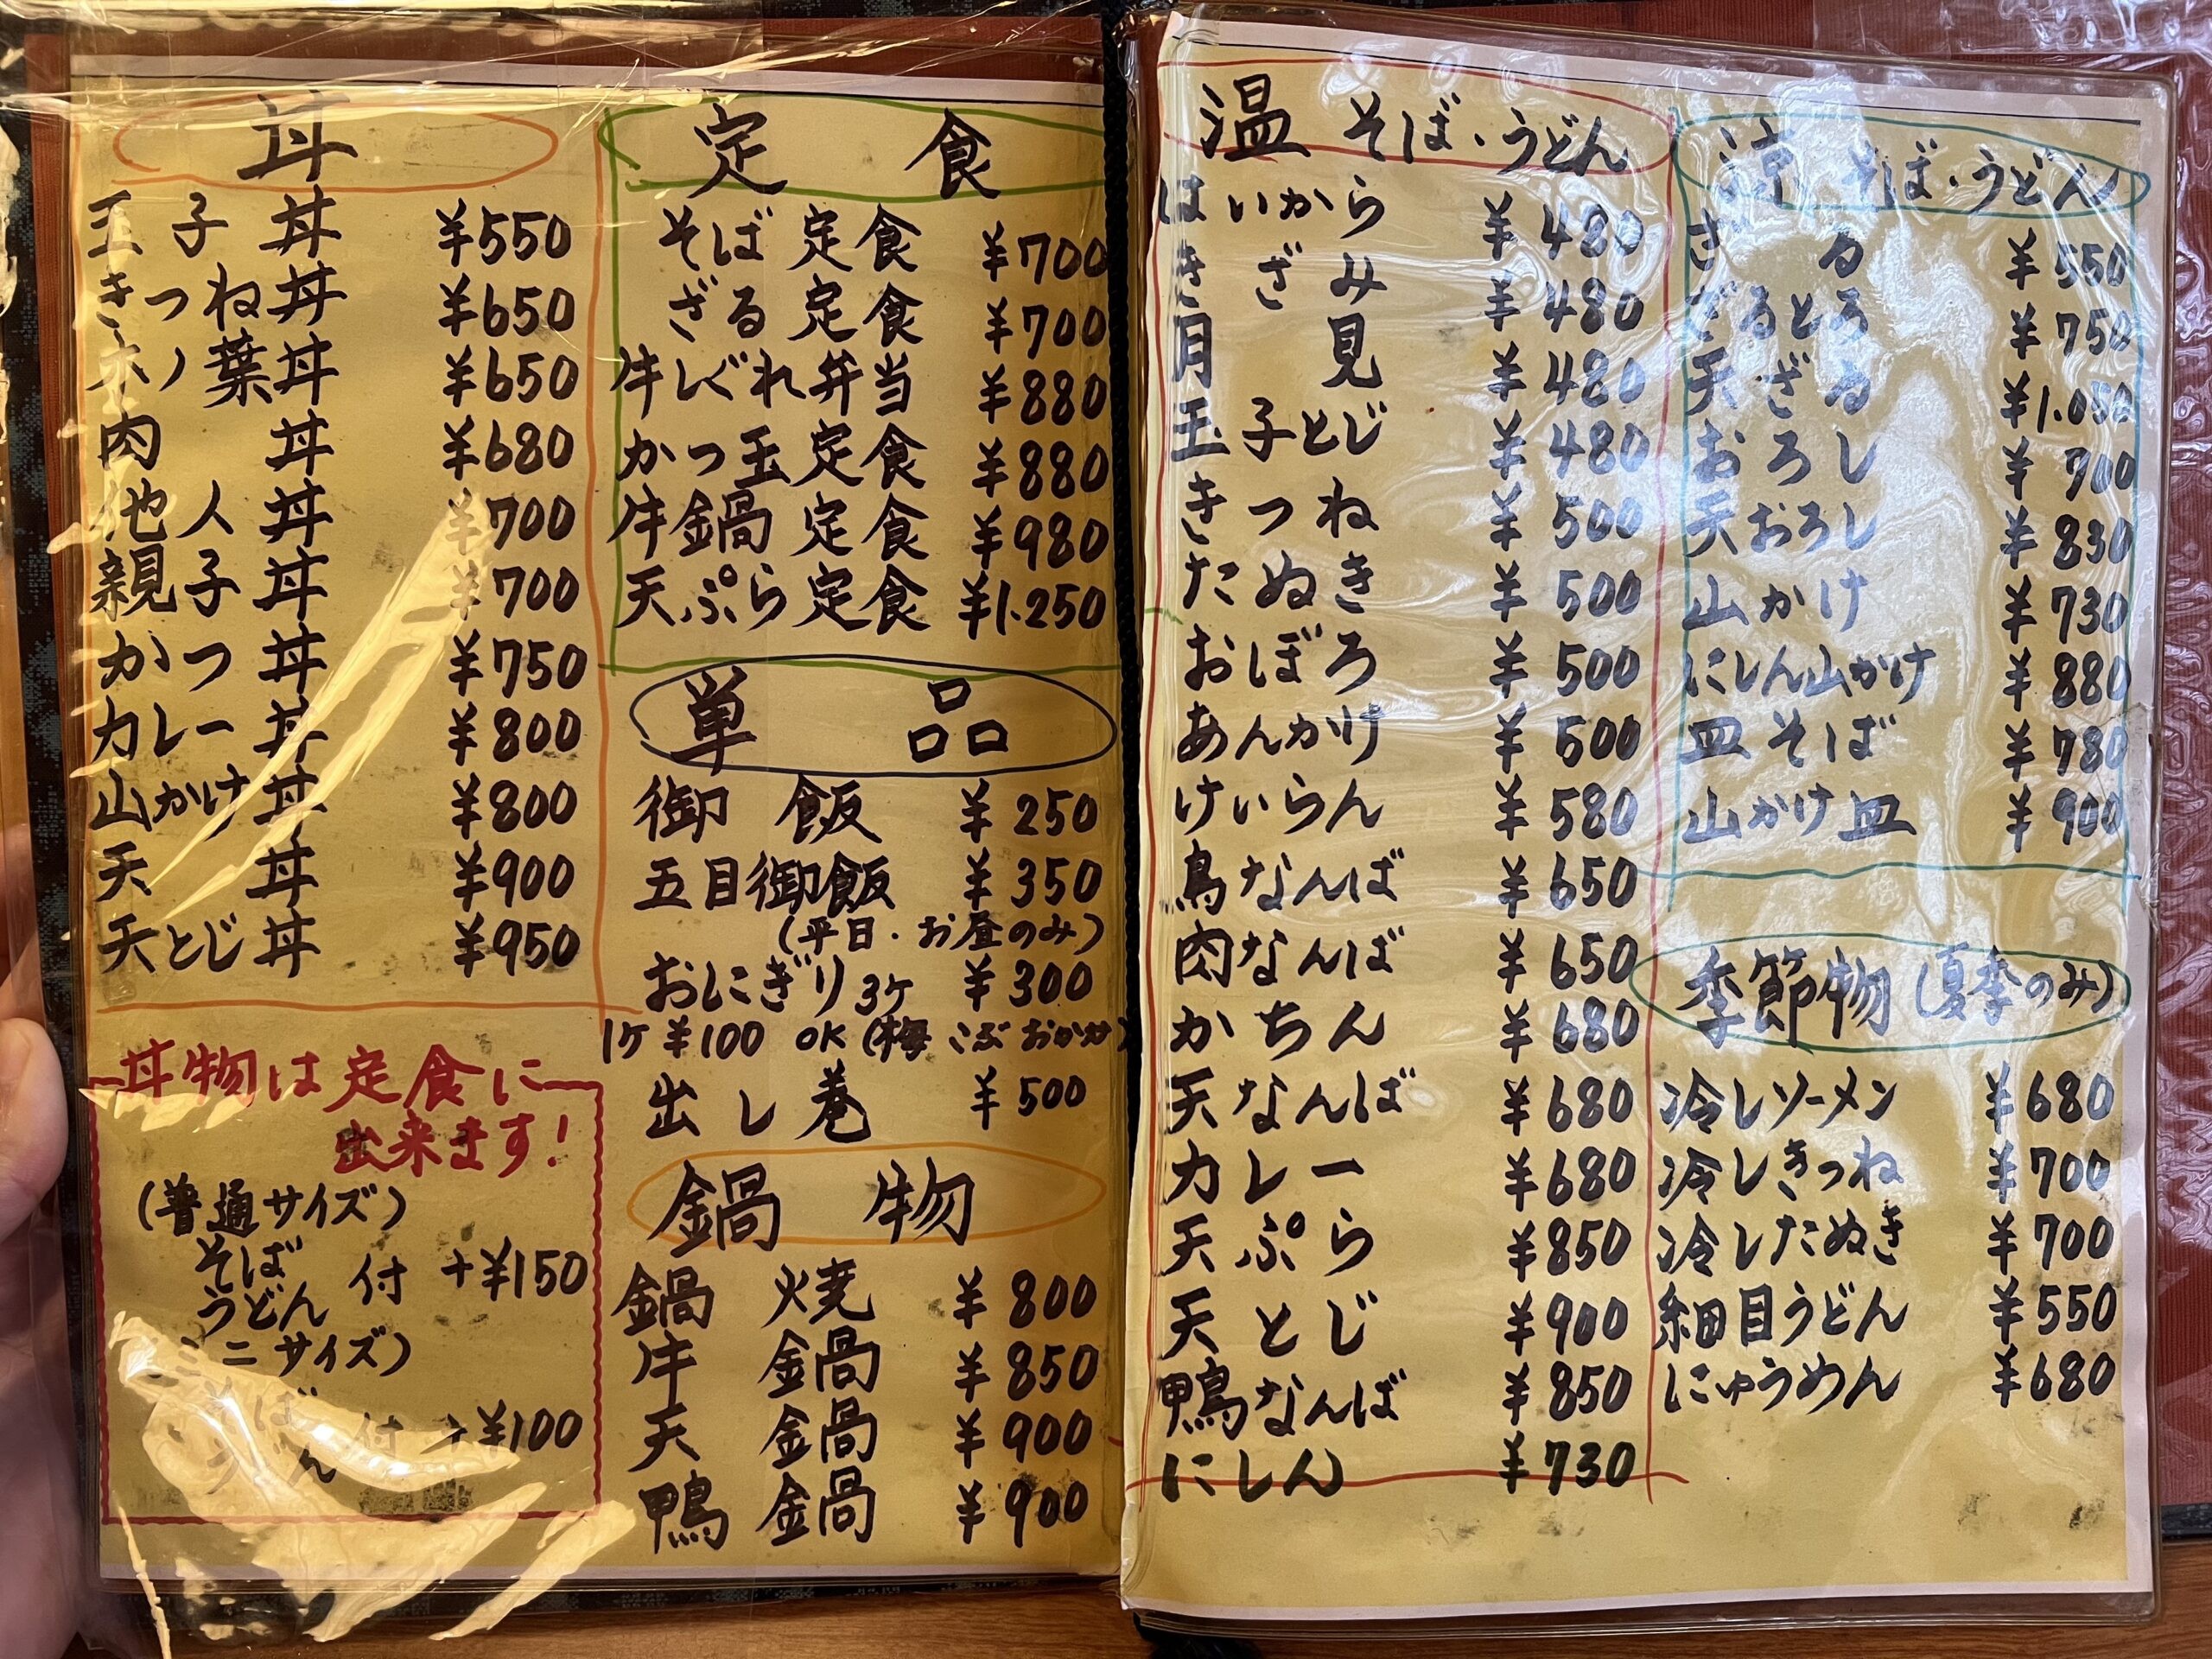 丼
玉子丼 ¥550
きつね丼 ¥650
木ノ葉丼 ¥650
肉丼 ¥680
他人丼 ¥700
親子丼 ¥700
かつ丼 ¥750
カレー丼 ¥800
山かけ丼 ¥800
天丼 ¥900
天とじ丼 ¥950
丼物は定食に
出来ます!
(普通サイズ)
そば
うどん 付 +¥150
(ミニサイズ)
そば
うどん 付 +¥100
定食
そば定食 ¥700
ざる定食 ¥700
牛しぐれ弁当 ¥880
かつ玉定食 ¥880
牛鍋定食 ¥980
天ぷら定食 ¥1.250
単品
御飯 ¥250
五目御飯 ¥350
(平日・お昼のみ)
おにぎり3ケ ¥300
1ケ ¥100 OK (梅 こぶ おかか)
出し巻 ¥500
鍋物
鍋焼 ¥800
牛鍋 ¥850
天鍋 ¥900
鴨鍋 ¥900
温そば・うどん
はいから ¥480
きざみ ¥480
月見 ¥480
玉子とじ ¥480
きつね ¥500
たぬき ¥500
おぼろ ¥500
あんかけ ¥500
けいらん ¥580
鳥なんば ¥650
肉なんば ¥650
かちん ¥680
天なんば ¥680
カレー ¥680
天ぷら ¥850
天とじ ¥900
鴨なんば ¥850
にしん ¥730
涼そば・うどん
ざる ¥550
ざるとろ ¥750
天ざる ¥1.050
おろし ¥700
天おろし ¥830
山かけ ¥730
にしん山かけ ¥880
皿そば ¥780
山かけ皿 ¥900
季節物(夏季のみ)
冷しソーメン ¥680
冷しきつね ¥700
冷したぬき ¥700
細目うどん ¥550
にゅうめん ¥680